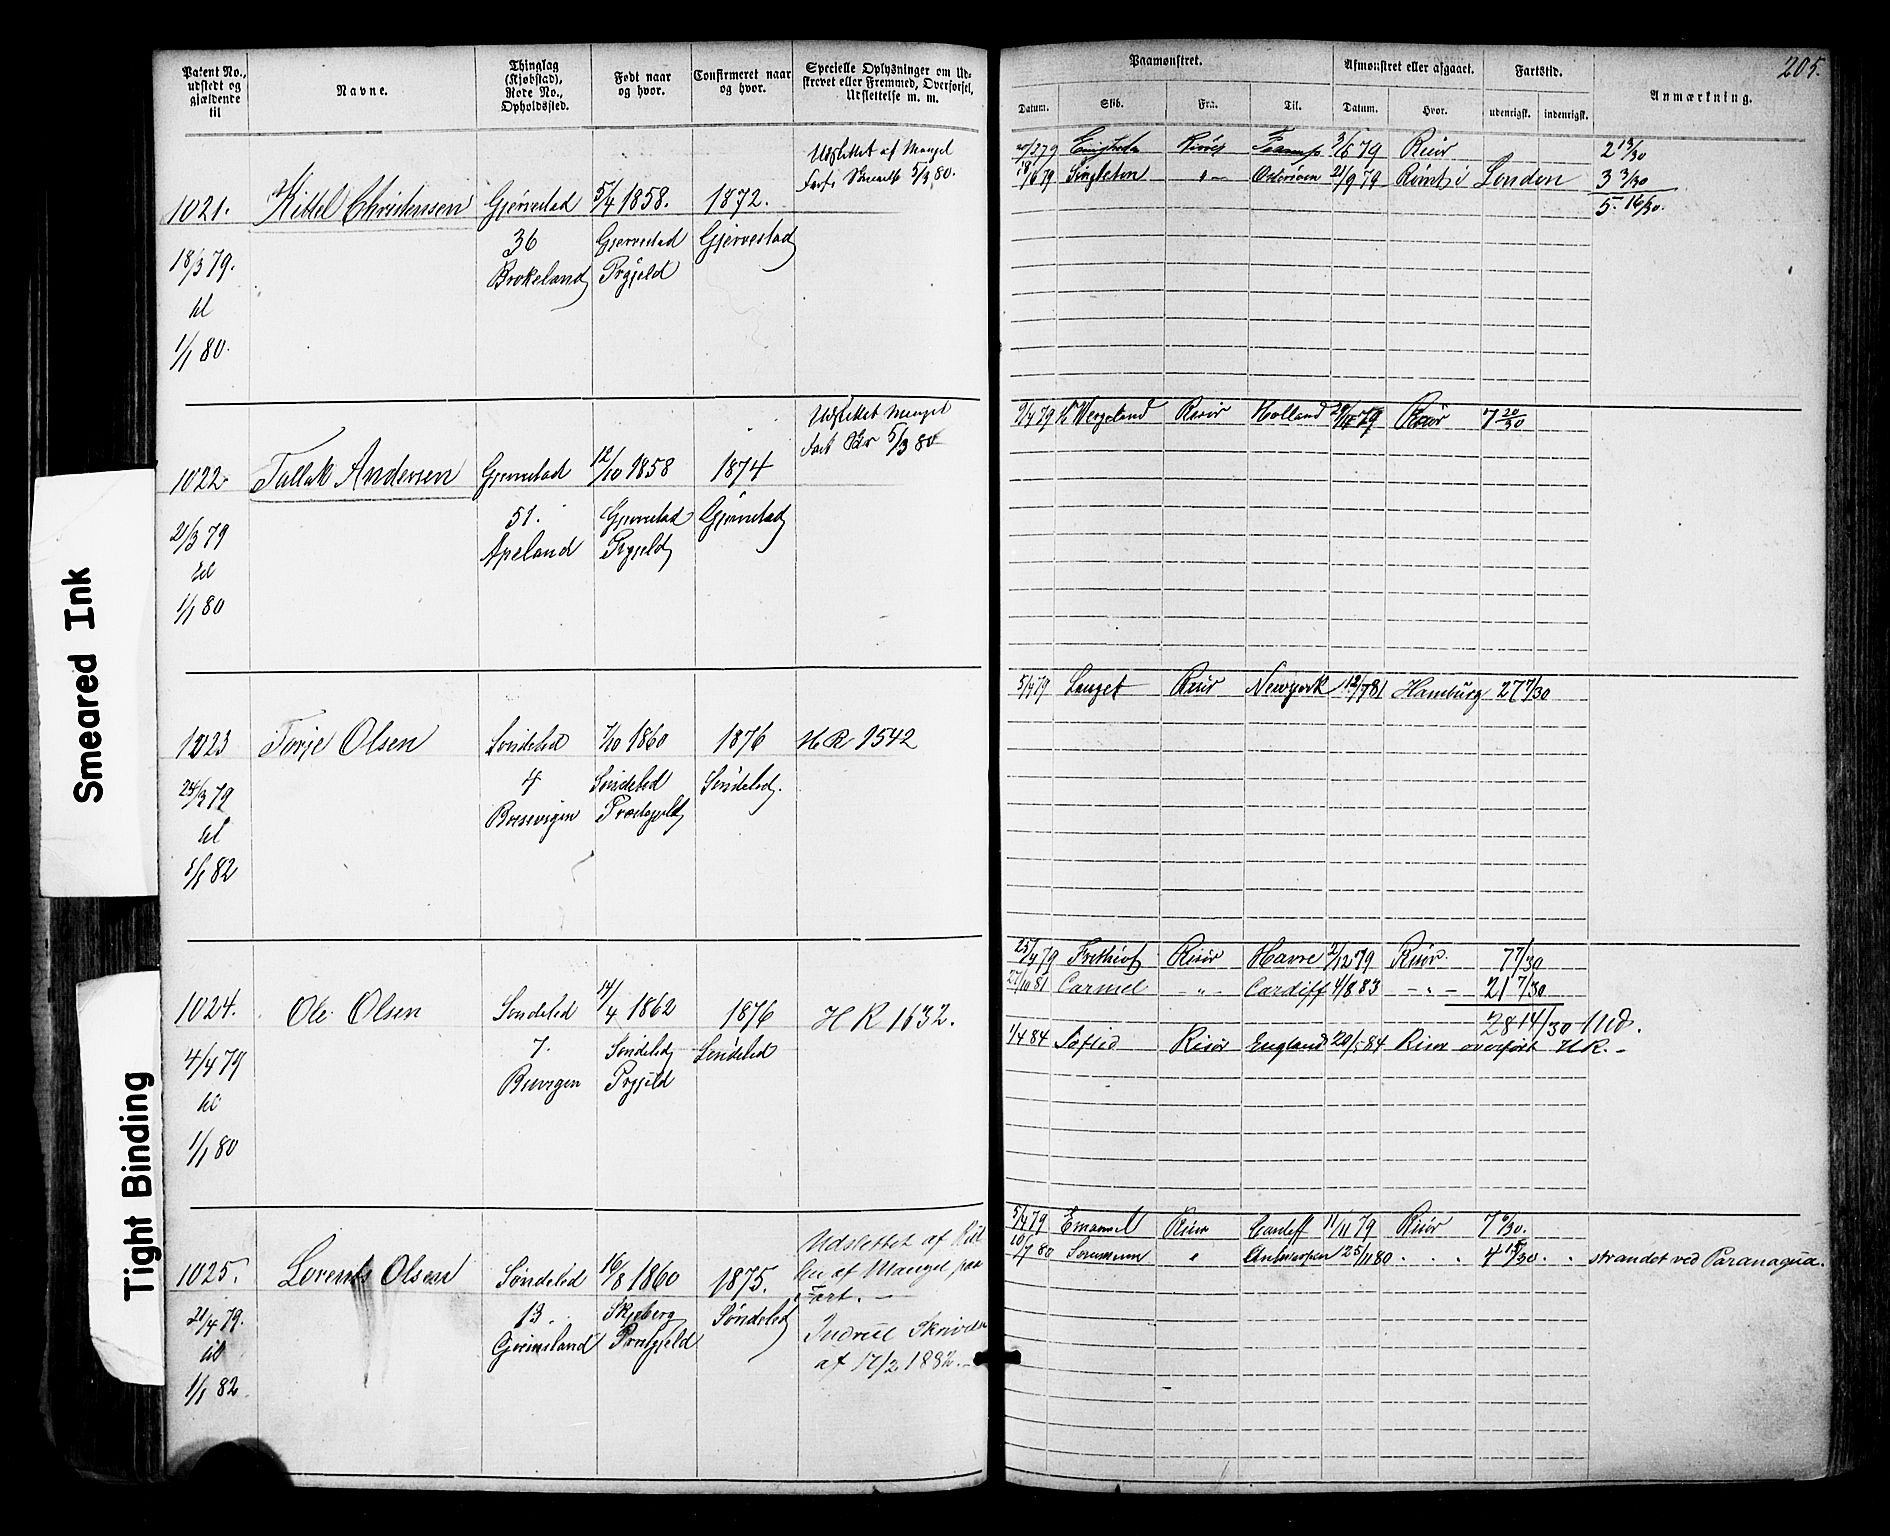 205.
Patent No., udstedt og gjældende til
Navne.
Thinglag (Kjøbstad), Rode No., Opholdssted.
Født naar og hvor.
Confirmeret naar og hvor.
Specielle Oplysninger om Udskrevet eller Fremmed, Overførsel, Udslettelse m. m.
Paamønstret.
Afmønstret eller afgaaet.
Fartstid.
Anmærkning.
Datum.
Skib.
Fra.
Til.
Datum.
Hvor.
udenrigsk.
indenrigsk.
Udslettet af Mangel
Fart 5/3 80.
1021. Kittel Christensen Gjerrestad 5/4 1858. 1872.
36 Gjerrestad Gjerrestad
18/3 79. Brokeland Prgjeld
til
1/1 80.
3/6 79 Risør 2 13/30
Singleton - " - 21/9 79 Rømt i London 3 3/30
5. 16/30.
Udslettet Mangel
Fart 5/3 80
1022. Tallak Andersen Gjerrestad 12/10 1858 1874
51. Gjerrestad Gjerrestad
21/3 79 Apeland Prgjeld
til
1/1 80
9/4 79 H Wergeland Risør Holland 29/11 79 Risør 7 20/30
1023 Torje Olsen Søndeled 7/10 1860 1876 HR 1542
4 Søndeled Søndeled.
24/3 79 Bossvigen Præstegjeld
til
1/1 82
5/4 79 Lauget Risør Newyork 12/7 81 Hamburg 27 7/30
1024. Ole Olsen Søndeled 14/4 1862 1876 HR 1632.
7. Søndeled Søndeled
4/4 79 Prgjeld
til
1/1 80
25/4 79 Frithiof Risør Havre 2/12 79 Risør. 7 7/30
27/10 81 Carmel - " - Cardiff 4/8 83 - " - 21 7/30
28 14/30 Md.
1/4 84 Risør England 20/5 84 Risør overført HR. -
1025. Lorents Olsen Søndeled 16/8 1860 1875.
13. Skjeberg Søndeled
21/4 79. Grimsland Prestgjeld
til
1/1 82
Udslettet af
af Mangel paa
Fart. -
Indrul. Skrivelse
af 17/2 1882. -
5/4 79 Emanuel Risør Cardiff 11/11 79 Risør 7 6/30.
10/7 80 " Antwerpen 25/11 80 . . . 4 15/30 . . strandet ved Paranagua.
Smeared Ink
Tight Binding